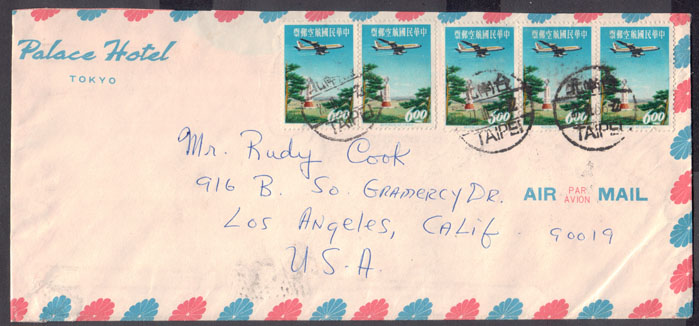 Palace Hotel
TOKYO
中華民國航空郵票
中華民國航空郵票
中華民國航空郵票
中華民國航空郵票
中華民國航空郵票
6.00
6.00
6.00
6.00
TAIPEI
TAIPEI
TAIPEI
Mr. Rudy Cook
916 B. So. GRAMERCY DR.
LOS ANGELES, CALIF
90019
U.S.A.
AIR PAR AVION MAIL